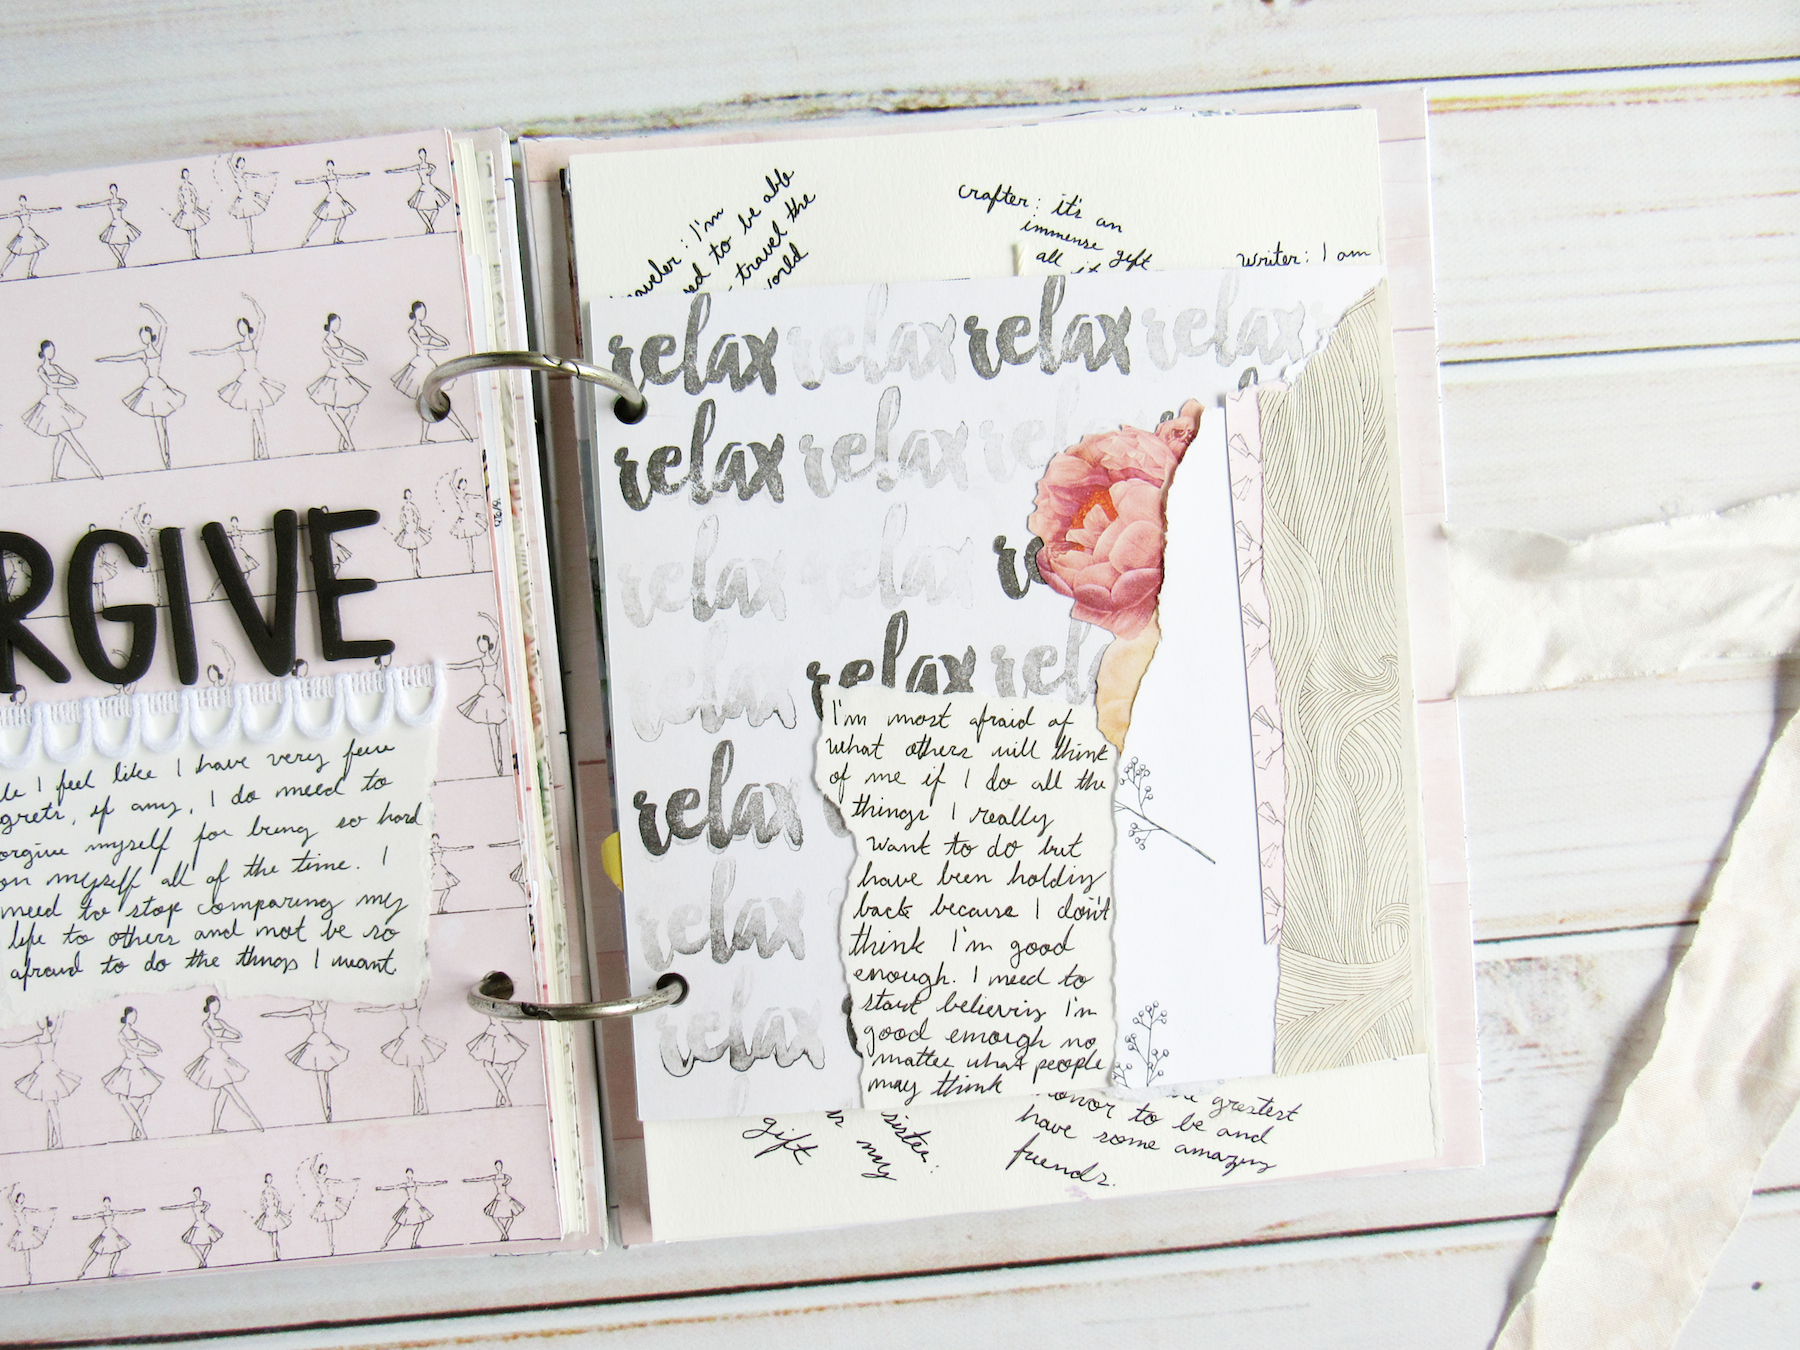 RGIVE
le I feel like I have very few
grets, if any, I do need to
orgive myself for being so hard
on myself all of the time. I
need to stop comparing my
life to others and not be so
afraid to do the things I want
aveler: I'm
ed to be able
travel the
world
crafter: it's an
immense gift
all it
writer: I am
relax relax relax relax
relax relax relax
relax relax re
relax relax rela
relax
relax
relax
I'm most afraid of
what others will think
of me if I do all the
things I really
want to do but
have been holding
back because I don't
think I'm good
enough. I need to
start believing I'm
good enough no
matter what people
may think
gift
sister:
is my
greatest
onor to be and
have some amazing
friends.